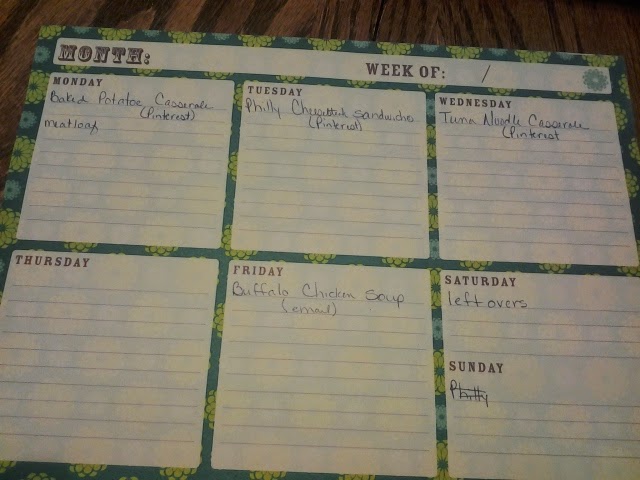 MONTH:
WEEK OF: /
MONDAY
Baked Potatoe Casserole
(Pinterest)
meatloaf
TUESDAY
Philly Cheesesteak sandwichs
(Pinterest)
WEDNESDAY
Tuna Noodle Casserole
(Pinterest
THURSDAY
FRIDAY
Buffalo Chicken Soup
(email)
SATURDAY
leftovers
SUNDAY
Philly